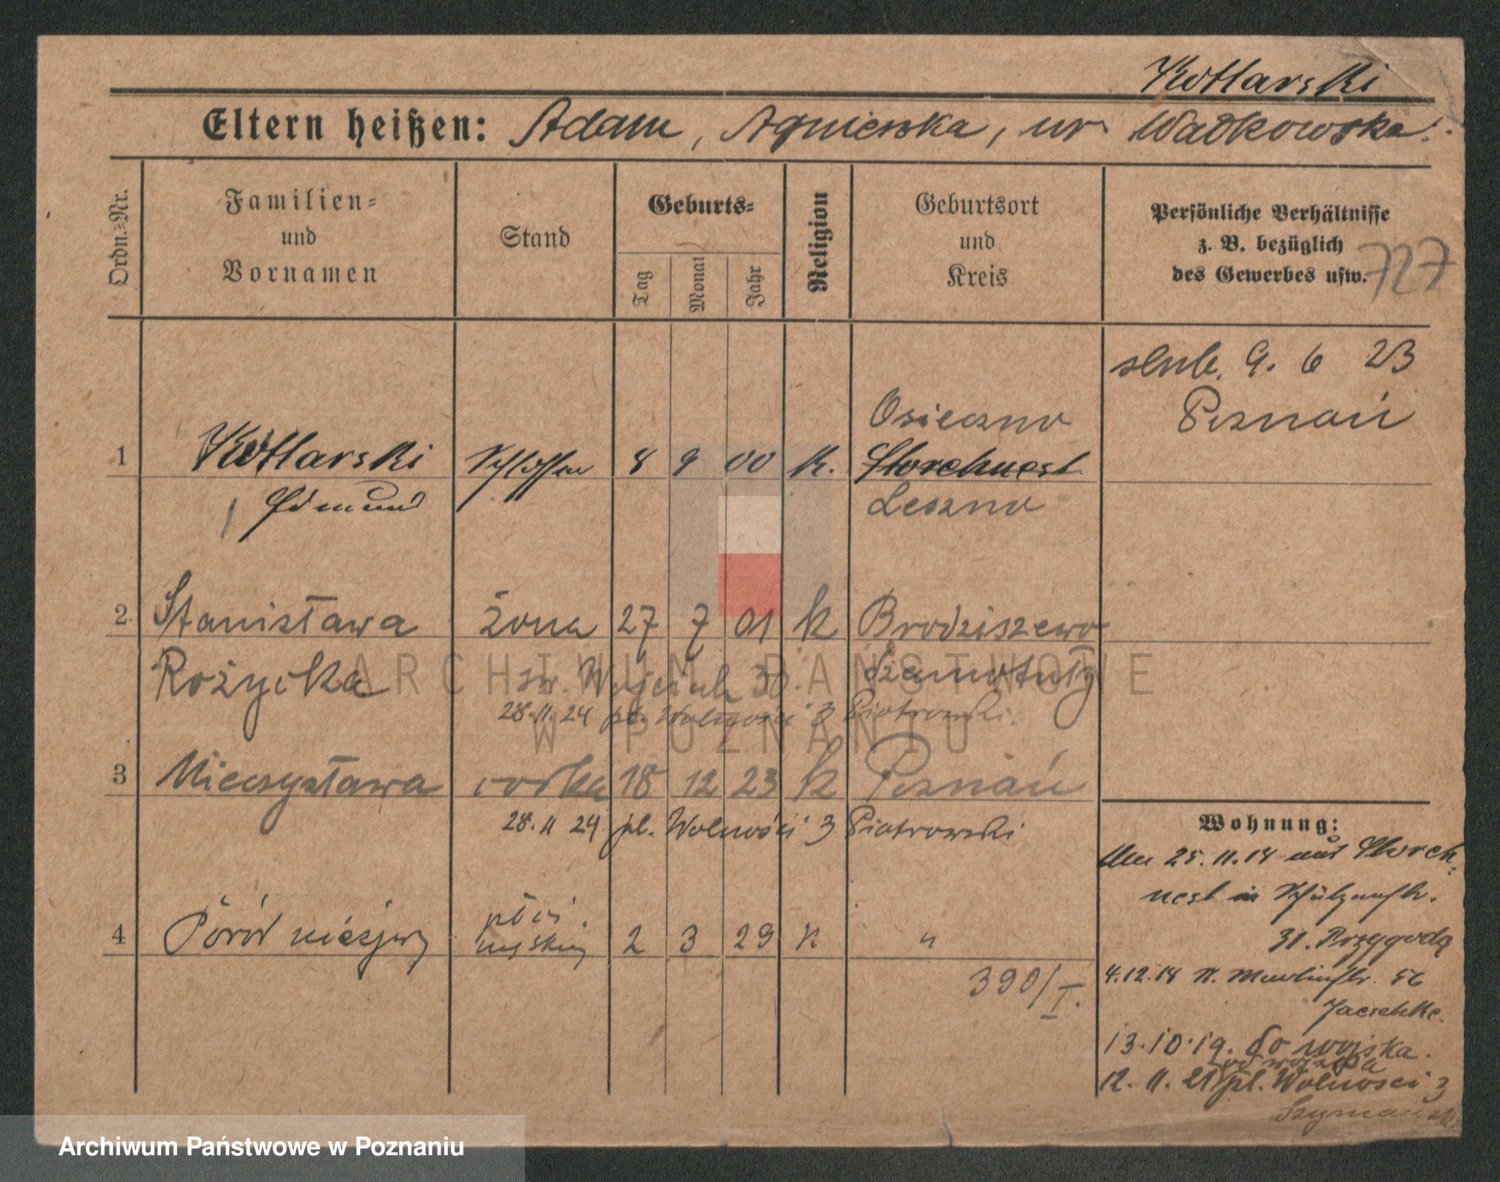 Kotlarski
Eltern heißen: Adam, Agnieszka, ur. Walkowska.
Ordn.-Nr.
Familien-
und
Vornamen
Stand
Geburts-
Tag
Monat
Jahr
Religion
Geburtsort
und
Kreis
Persönliche Verhältnisse
z. B. bezüglich
des Gewerbes usw.
727
ślub. 9. 6 23
Poznań
Osieczno
1 Kotlarski Schlosser 8 9 00 K. Storchnest
Edmund
Leszno
2 Stanisława żona 27 7 01 k Brodziszewo
Rożycka św. Wojciech 30. Szamotuły
28.11.24 pl. Wolności 3 Piotrowski
3 Mieczysława córka 18 12 23 k Poznań
28.11 24 pl. Wolności 3 Piotrowski
4 Poród nieżywy płci męskiej 2 3 29 k "
390/I.
Wohnung:
Am 25.11.18 aus Storch-
nest in Schützenstr.
31. Przygoda
4.12.18 N. Martinstr. 56
Jaeschke.
13.10.19. do wojska.
od wojska
12.11.21 pl. Wolności 3
Szymański
ARCHIWUM PAŃSTWOWE
W POZNANIU
Archiwum Państwowe w Poznaniu